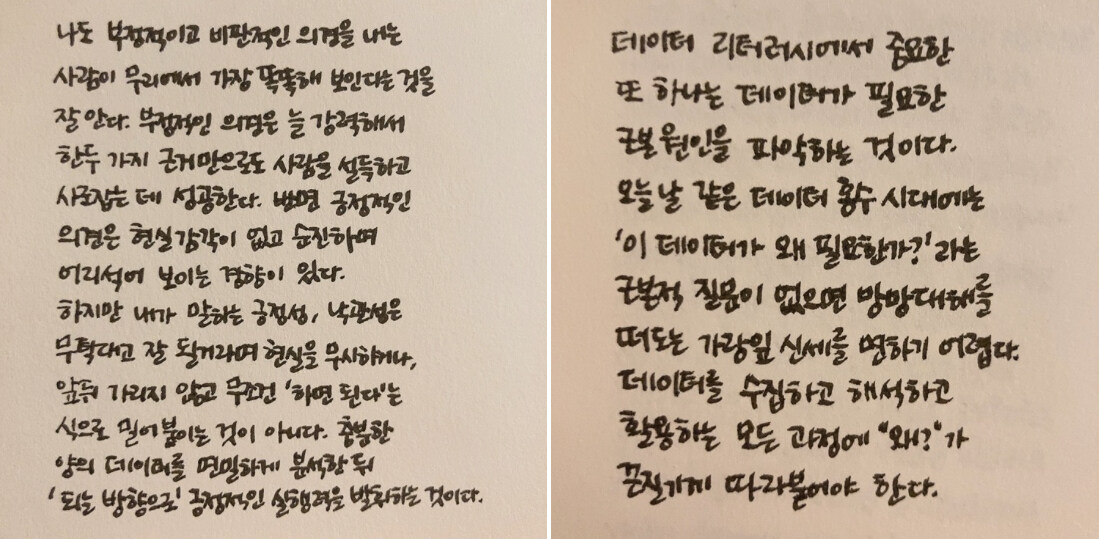 나도 부정적이고 비판적인 의견을 내는
사람이 무리에서 가장 똑똑해 보인다는 것을
잘 안다. 부정적인 의견은 늘 강력해서
한두 가지 근거만으로도 사람을 설득하고
사로잡는 데 성공한다. 반면 긍정적인
의견은 현실감각이 없고 순진하며
어리석어 보이는 경향이 있다.
하지만 내가 말하는 긍정성, 낙관성은
무턱대고 잘 될거라며 현실을 무시하거나,
앞뒤 가리지 않고 무조건 '하면 된다'는
식으로 밀어붙이는 것이 아니다. 충분한
양의 데이터를 면밀하게 분석한 뒤
'되는 방향으로' 긍정적인 실행력을 발휘하는 것이다.
데이터 리터러시에서 중요한
또 하나는 데이터가 필요한
근본 원인을 파악하는 것이다.
오늘날 같은 데이터 홍수 시대에는
'이 데이터가 왜 필요한가?'라는
근본적 질문이 없으면 망망대해를
떠도는 가랑잎 신세를 면하기 어렵다.
데이터를 수집하고 해석하고
활용하는 모든 과정에 "왜?"가
끈질기게 따라붙어야 한다.